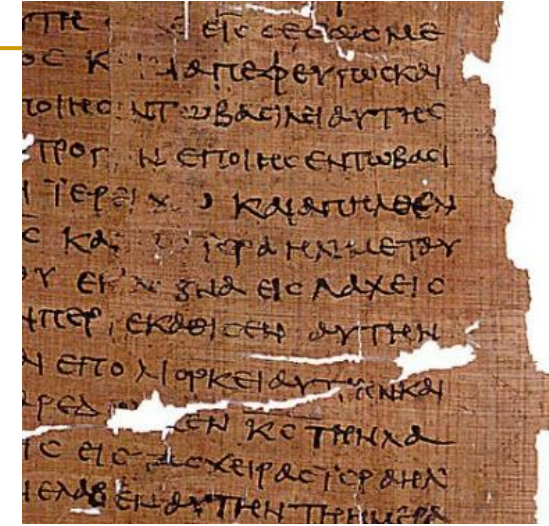 ΕΙϹ ϹΕϹΩϹΜΕ
ΟϹ Κ ΔΙΑΠΕΦΕΥΓΩϹ ΚΑΙ
ΠΟΙΗϹ ΝΤΩ ΒΑϹΙΛΕΙ ΑΥΤΗϹ
ΤΡΟΠ Ν ΕΠΟΙΗϹΕΝ ΤΩ ΒΑϹΙ
ΙΕΡΕΙΧ ΚΑΙ ΑΠΗΛΘΕΝ
Ϲ ΚΑΙ ΙϹΡΑΗΛ ΜΕΤ ΑΥ
Υ ΕΚ ΒΝΑ ΕΙϹ ΛΑΧΕΙϹ
ΠΕΡΙΕΚΑΘΙϹΕΝ ΑΥΤΗΝ
Ι ΕΠΟΛΙΟΡΚΕΙ ΑΥΤΗΝ ΚΑΙ
ΡΕΔ ΕΝ ΚϹ ΤΗΝ ΛΑ
Ϲ ΕΙϹ ΤΑϹ ΧΕΙΡΑϹ ΙϹΡΑΗΛ
ΕΛΑΒΕΝ ΑΥΤΗΝ ΤΗ ΗΜΕΡΑ